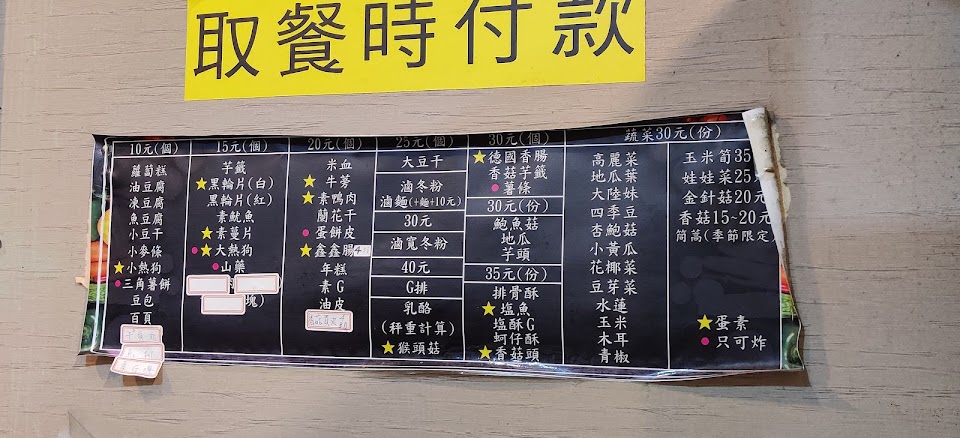 取餐時付款
10元(個)
蘿蔔糕
油豆腐
凍豆腐
魚豆腐
小豆干
小麥條
★小熱狗
●三角薯餅
豆包
百頁
15元(個)
芋籤
★黑輪片(白)
黑輪片(紅)
素魷魚
★素薑片
●★大熱狗
●山藥
塊
20元(個)
米血
★牛蒡
★素鴨肉
蘭花干
●蛋餅皮
★鑫鑫腸
年糕
素G
油皮
25元(個)
大豆干
滷冬粉
滷麵(+麵+10元)
30元
滷寬冬粉
40元
G排
乳酪
(秤重計算)
★猴頭菇
30元(個)
★德國香腸
香菇芋籤
●薯條
30元(份)
鮑魚菇
地瓜
芋頭
35元(份)
排骨酥
★塩魚
塩酥G
蚵仔酥
★香菇頭
蔬菜30元(份)
高麗菜
地瓜葉
大陸妹
四季豆
杏鮑菇
小黃瓜
花椰菜
豆芽菜
水蓮
玉米
木耳
青椒
玉米筍35
娃娃菜25
金針菇20元
香菇15~20元
筒蒿(季節限定)
★蛋素
●只可炸